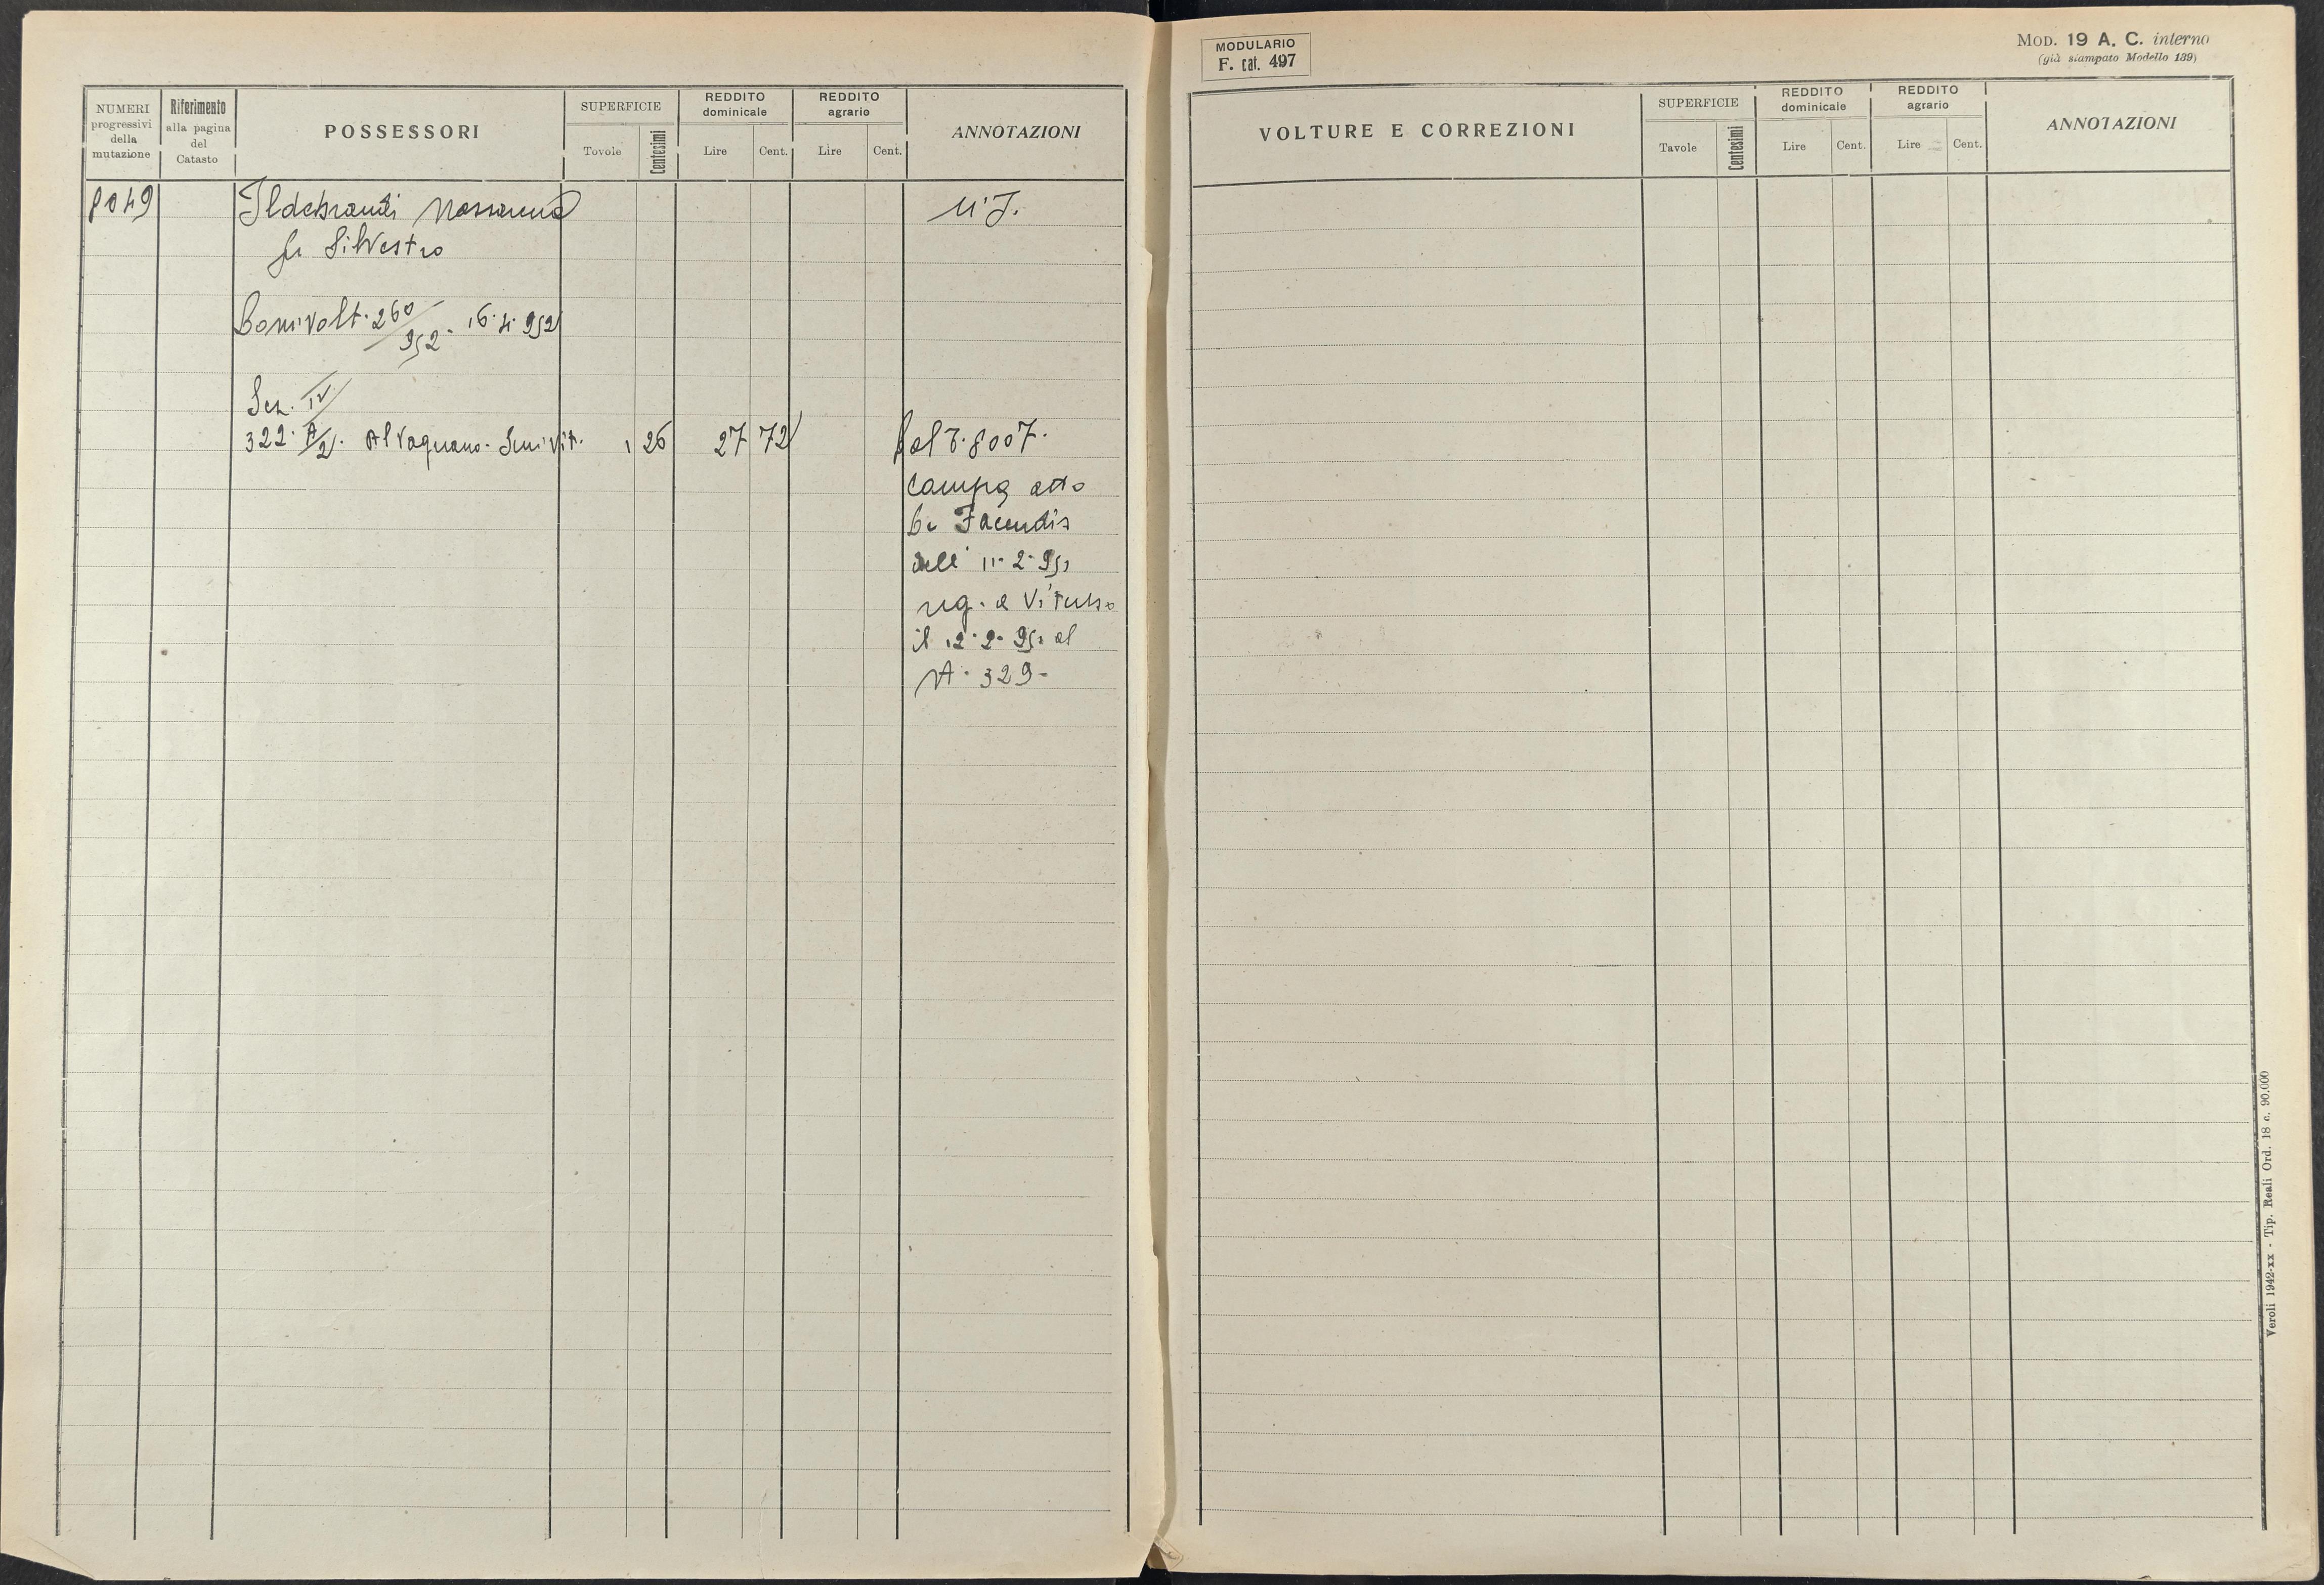 NUMERI progressivi della mutazione
Riferimento alla pagina del Catasto
POSSESSORI
SUPERFICIE
Tovole
Centesimi
REDDITO dominicale
Lire
Cent.
REDDITO agrario
Lire
Cent.
ANNOTAZIONI
8049
Ildebrandi
fu Silvestro
260/952 · 16·4·952
Sez. IV
322· A/2
1 26
27 72
dal 8007·
Compra atto
De Facendis
dell' 11·2·952
reg. a
il 12·2·952 al
N· 329-
MODULARIO
F. cat. 497
MOD. 19 A. C. interno
(già stampato Modello 139)
VOLTURE E CORREZIONI
SUPERFICIE
Tavole
Centesimi
REDDITO dominicale
Lire
Cent.
REDDITO agrario
Lire
Cent.
ANNOTAZIONI
Veroli 1942-xx - Tip. Reali Ord. 18 c. 90.000